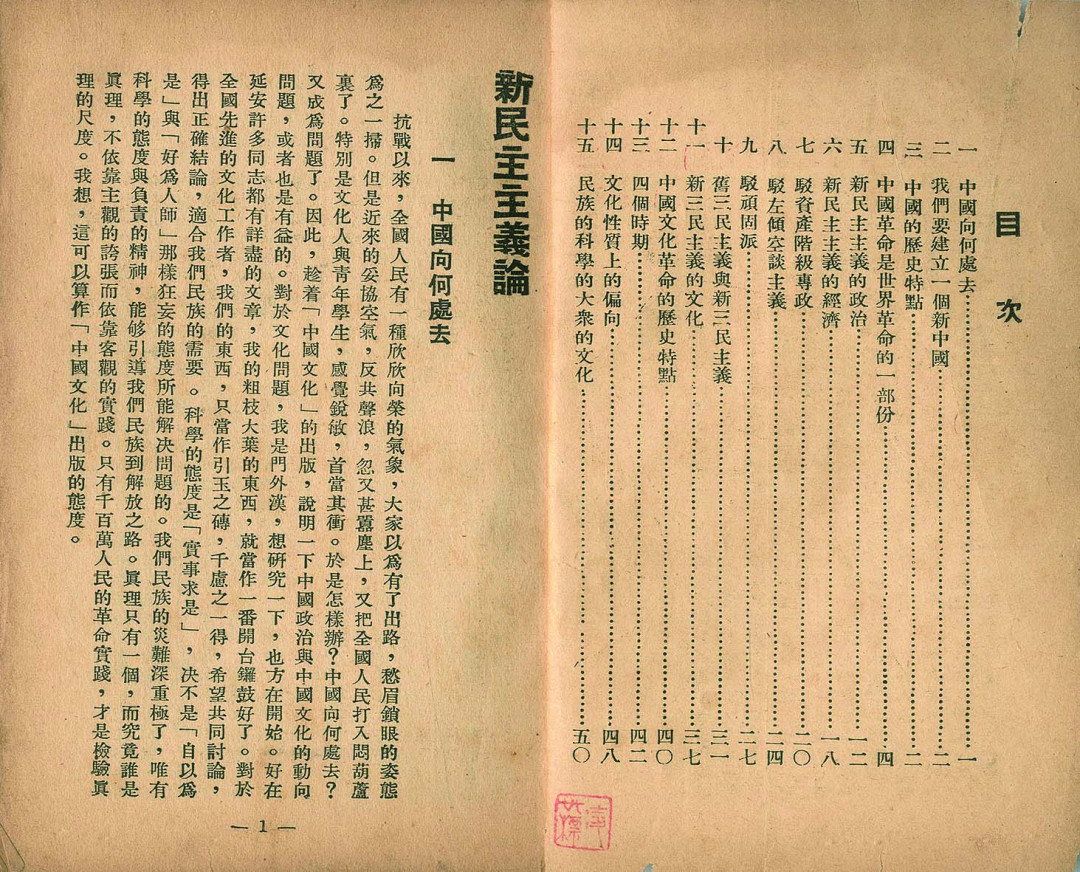 目次
一 中國向何處去 一
二 我們要建立一個新中國 二
三 中國的歷史特點 二
四 中國革命是世界革命的一部份 四
五 新民主主義的政治 一二
六 新民主主義的經濟 一八
七 駁資產階級專政 二〇
八 駁左傾空談主義 二四
九 駁頑固派 二七
十 舊三民主義與新三民主義 三一
十一 新三民主義的文化 三七
十二 中國文化革命的歷史特點 四〇
十三 四個時期 四二
十四 文化性質上的偏向 四八
十五 民族的科學的大衆的文化 五〇
新民主主義論
一 中國向何處去
抗戰以來,全國人民有一種欣欣向榮的氣象,大家以爲有了出路,愁眉鎖眼的姿態
爲之一掃。但是近來的妥協空氣,反共聲浪,忽又甚囂塵上,又把全國人民打入悶葫蘆
裏了。特別是文化人與靑年學生,感覺銳敏,首當其衝。於是怎樣辦?中國向何處去?
又成爲問題了。因此,趁着「中國文化」的出版,說明一下中國政治與中國文化的動向
問題,或者也是有益的。對於文化問題,我是門外漢,想研究一下,也方在開始。好在
延安許多同志都有詳盡的文章,我的粗枝大葉的東西,就當作一番開台鑼鼓好了。對於
全國先進的文化工作者,我們的東西,只當作引玉之磚,千慮之一得,希望共同討論,
得出正確結論,適合我們民族的需要。科學的態度是「實事求是」,決不是「自以爲
是」與「好爲人師」那樣狂妄的態度所能解決問題的。我們民族的災難深重極了,唯有
科學的態度與負責的精神,能够引導我們民族到解放之路。眞理只有一個,而究竟誰是
眞理,不依靠主觀的誇張而依靠客觀的實踐。只有千百萬人民的革命實踐,才是檢驗眞
理的尺度。我想,這可以算作「中國文化」出版的態度。
— 1 —